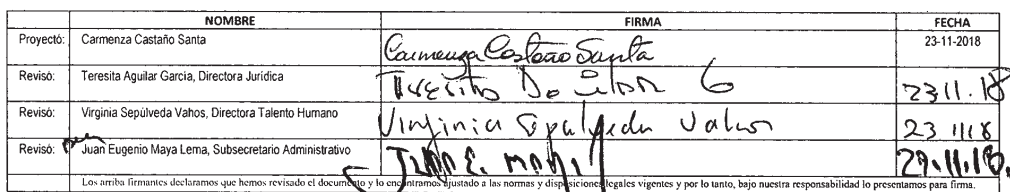 NOMBRE FIRMA FECHA
Proyectó: Carmenza Castaño Santa Carmenza Castaño Santa 23-11-2018
Revisó: Teresita Aguilar Garcia, Directora Jurídica Teresita 23.11.18
Revisó: Virginia Sepúlveda Vahos, Directora Talento Humano Virginia Sepulveda Vahos 23 11 18
Revisó: Juan Eugenio Maya Lema, Subsecretario Administrativo Juan E. Maya
Los arriba firmantes declaramos que hemos revisado el documento y lo encontramos ajustado a las normas y disposiciones legales vigentes y por lo tanto, bajo nuestra responsabilidad lo presentamos para firma.